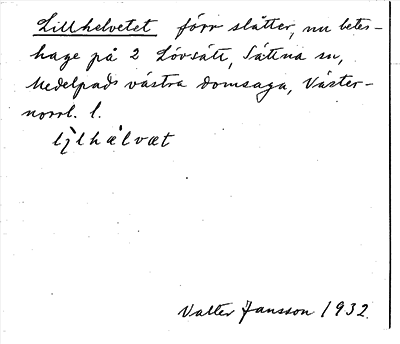 Lillhelvetet förr slåtter, nu betes-
hage på 2 Lövsätt, Sättna sn,
Medelpads västra domsaga, Väster-
norrl. l.
lìlhælvæt
Valter Jansson 1932.